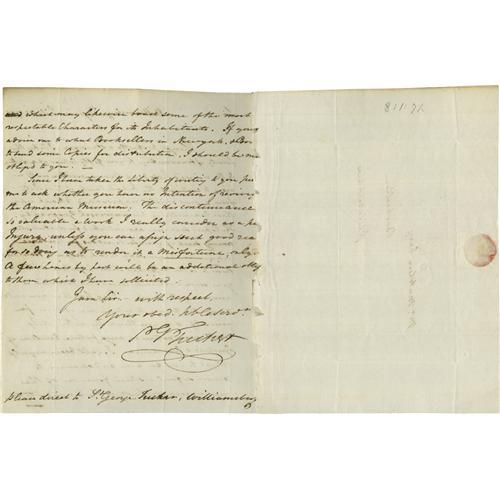 and which may likewise boast some of the most
respectable Characters for its Inhabitants. If you
advise me to what Booksellers in Newyork
to send some Copies for distribution, I should be
obliged to you. —
Since I have taken the liberty of writing to you
me to ask whether you have no Intention of reviving
the American Museum. The discontinuance
so valuable a work I really consider as a
Injury, unless you can assign such good
for so doing as to render it a Misfortune, only.
A few lines by post will be an additional
to them which I have solicited.
I am Sir. with respect,
Your obed. hble serv.t
St G Tucker
please direct to St. George Tucker, Williamsburg